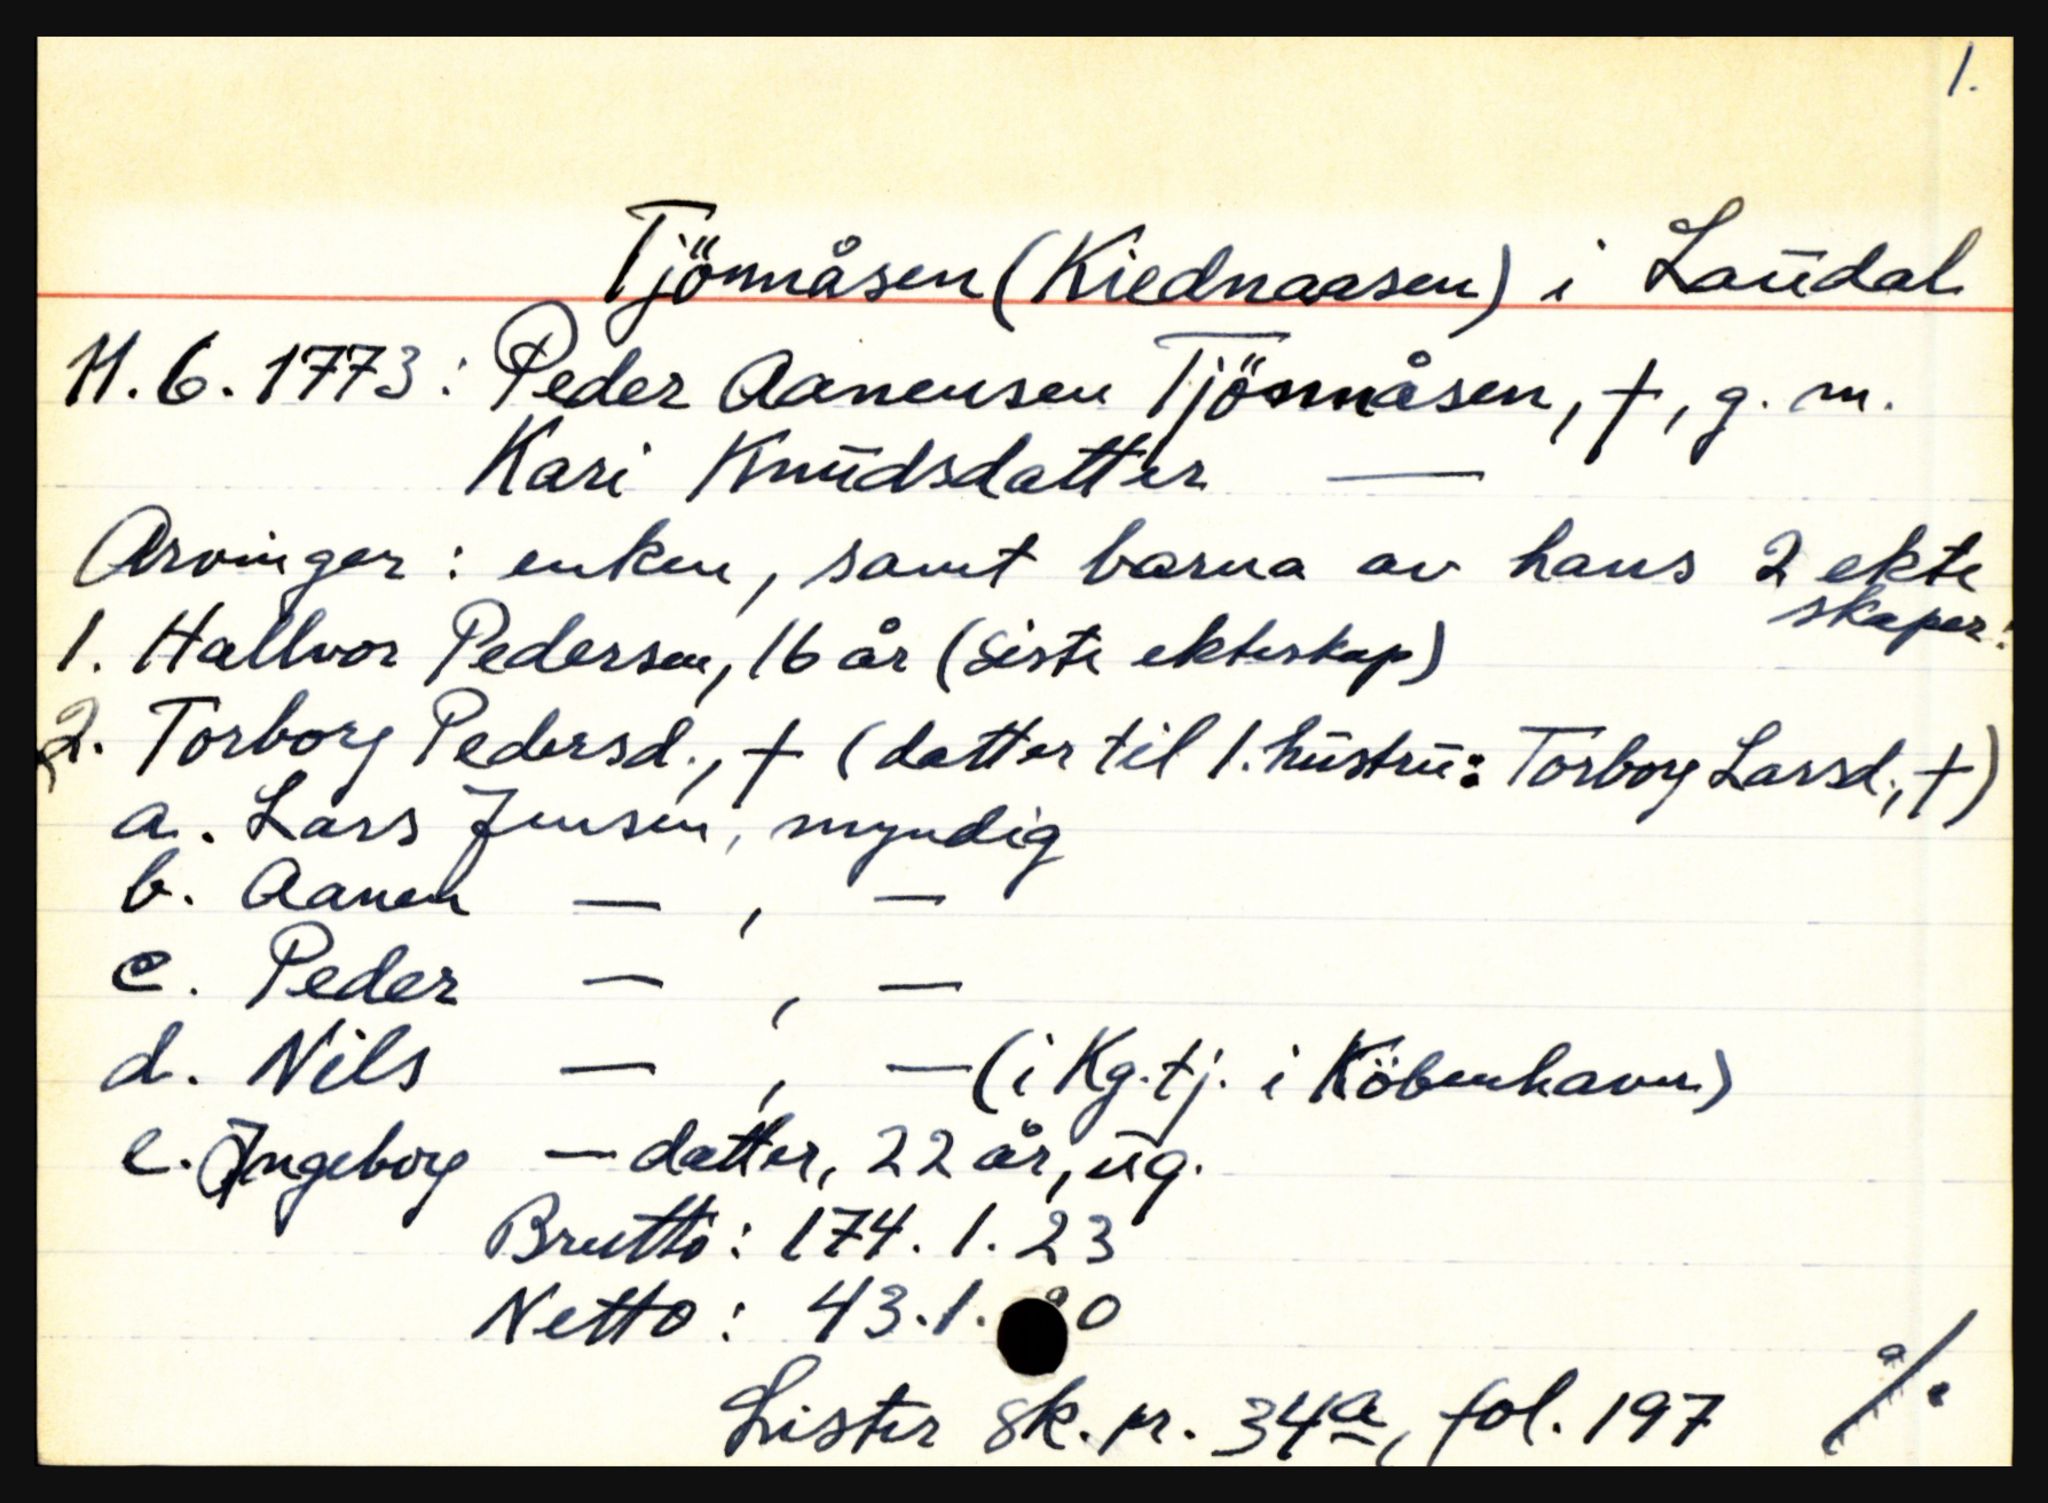 1.
Tjönnåsen (Kiednaasen) i Laudal
11.6.1773: Peder Aanensen Tjönnåsen, †, g. m.
Kari Knudsdatter —
Arvinger: enken, samt barna av hans 2 ekte
skaper:
1. Hallvor Pedersen, 16 år (siste ekteskap)
2. Torborg Pedersd., † (datter til 1. hustru: Torborg Larsd., †)
a. Lars Jensen, myndig
b. Aanen — , —
c. Peder — , —
d. Nils — , — (i Kg. tj. i Köbenhavn)
e. Ingeborg — datter, 22 år, ug.
Brutto: 174. 1. 23
Netto: 43. 1.
Lister sk. pr. 34a, fol. 197